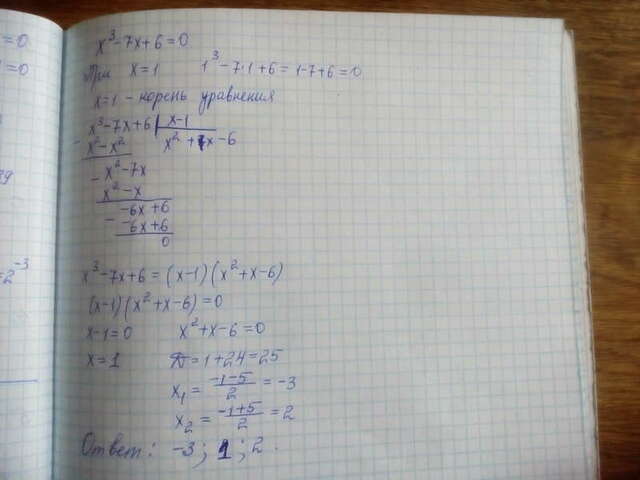 =0
x³-7x+6=0
=0
При x=1 1³-7·1+6=1-7+6=0
x=1 - корень уравнения
x³-7x+6 | x-1
- x³-x² x²+x-6
- x²-7x
x²-x
- -6x+6
-6x+6
0
=2⁻³
x³-7x+6=(x-1)(x²+x-6)
(x-1)(x²+x-6)=0
x-1=0 x²+x-6=0
x=1 D=1+24=25
x₁=(-1-5)/2=-3
x₂=(-1+5)/2=2
Ответ: -3; 1; 2.